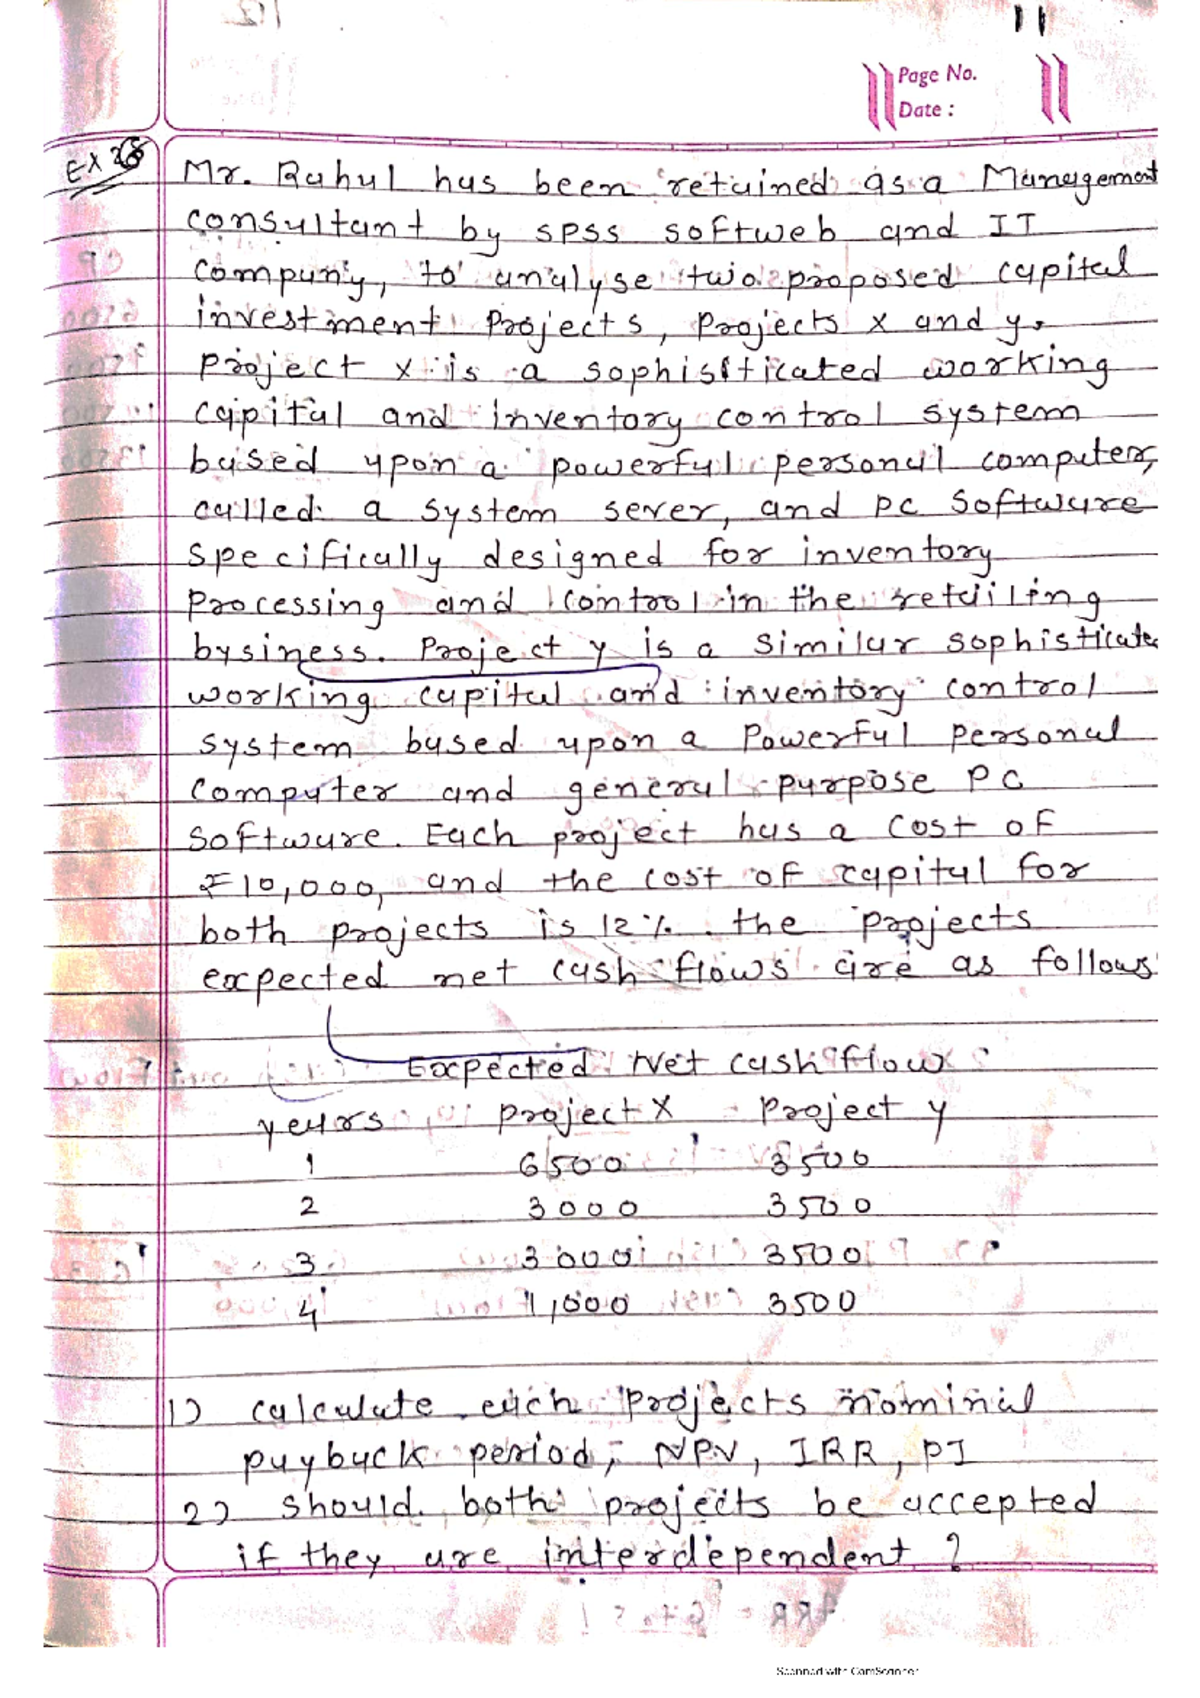 Page No.
Date :
EX 26
Mr. Rahul has been retained as a Management
consultant by SPSS softweb and IT
company, to analyse two proposed capital
investment projects, projects X and y.
project X is a sophisticated working
capital and inventory control system
based upon a powerful personal computer,
called a system sever, and PC software
specifically designed for inventory
processing and control in the retailing
business. Project y is a similar sophisticate
working capital and inventory control
system based upon a powerful personal
computer and general purpose PC
software. Each project has a cost of
₹10,000, and the cost of capital for
both projects is 12%. the projects
expected net cash flows are as follows
Expected Net cash flow
years project X Project y
1 6500 3500
2 3000 3500
3 3000 3500
4 1,000 3500
1) calculate each projects nominal
payback period, NPV, IRR, PI
2) should both projects be accepted
if they are interdependent ?
Scanned with CamScanner